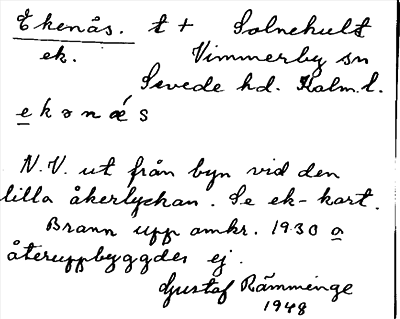 Ekenås. t + Solnehult
ek. Vimmerby sn
Sevede hd. Kalm.l.
e k ə n ǽ s
N.V. ut från byn vid den
lilla åkerlyckan. Se ek-kart.
Brann upp omkr. 1930 o
återuppbyggdes ej.
Gustaf Rämminge
1948